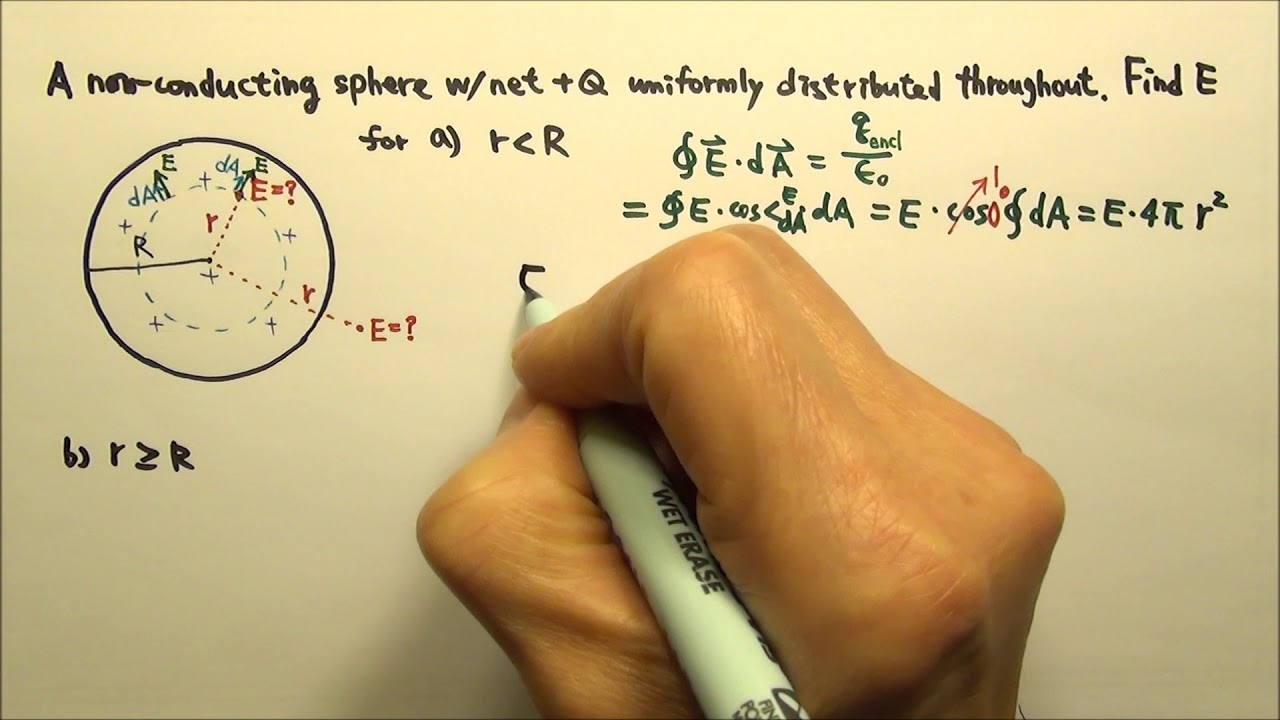 A non-conducting sphere w/net +Q uniformly distributed throughout. Find E
for a) r<R
∮E⃗·dA⃗ = q encl / ε₀
= ∮E·cos<E dA dA = E·cos0° 1 ∮dA = E·4π r²
dA E dA E
E=?
r
R
r
E=?
b) r ≥ R
WET ERASE